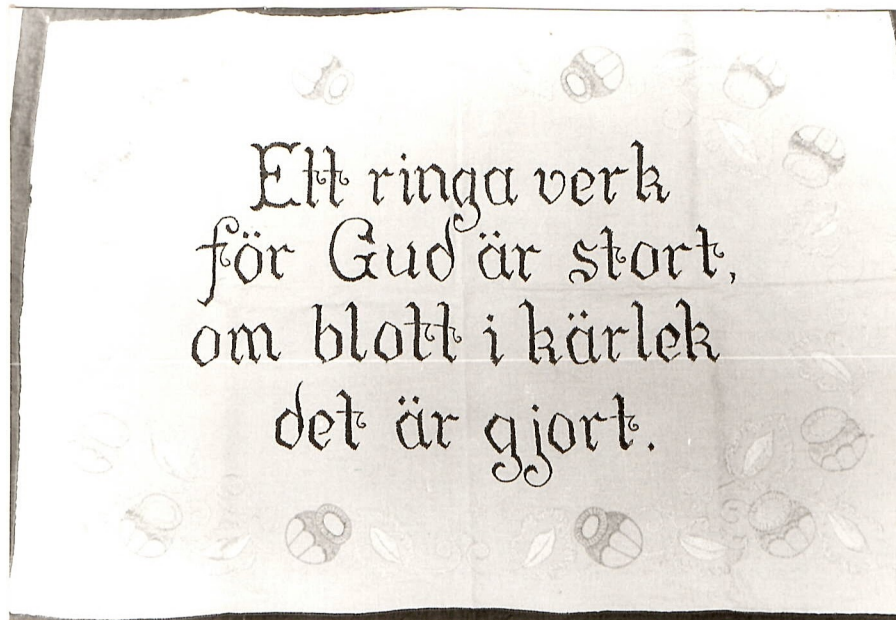 Ett ringa verk
för Gud är stort,
om blott i kärlek
det är gjort.